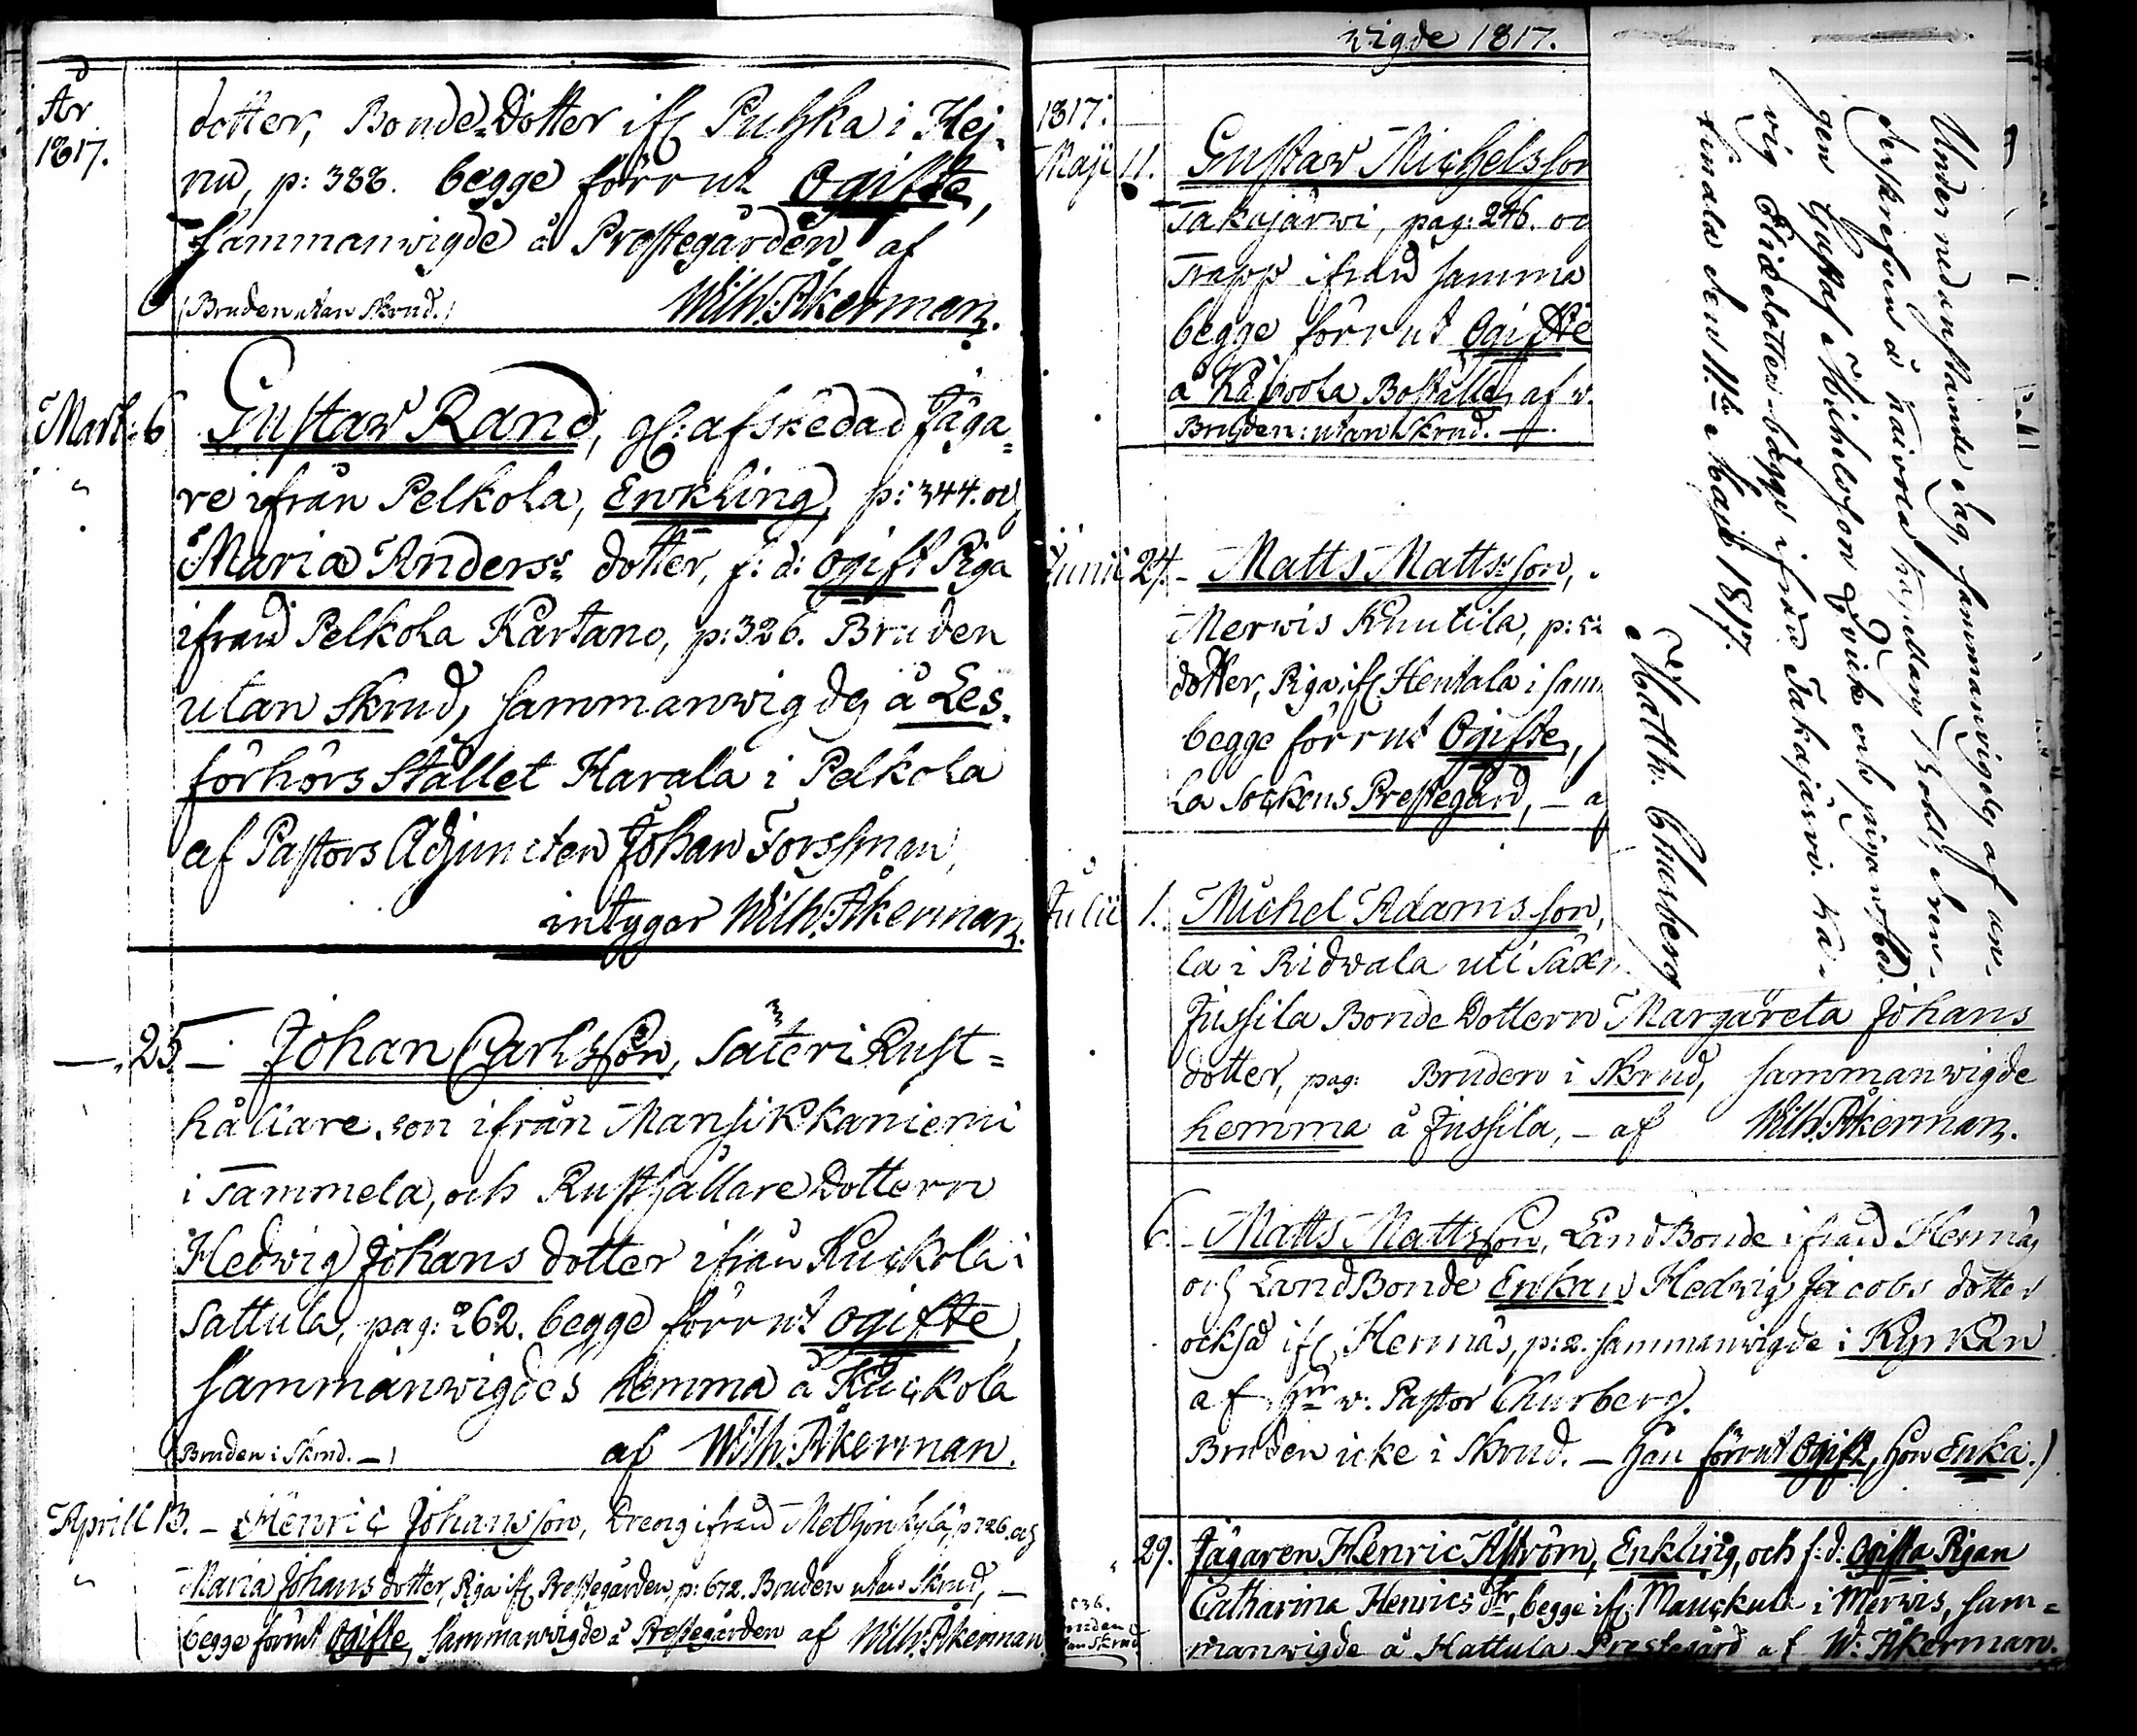 År
1817.
dotter, Bonde-Dotter ifr Puhska i Hej-
nu, p: 388. begge förrut Ogifte,
Sammanwigde å Prestegården af
(Bruden utan Skrud.) Wilh: Åkerman.
Mart: 6 Gustaw Rand, gl: afskedad Jäga-
re ifrån Pelkola, Enkling, p: 344. och
Maria Anderss dotter, f: d: ogift Piga
ifrån Pelkola Kartano, p: 326. Bruden
utan Skrud, sammanwigdes å Läs-
förhörs Stället Harala i Pelkola
af Pastors Adjuncten Johan Forssman,
intygar Wilh: Åkerman.
—. 25 — Johan Carlsson, Säteri Rust-
hållare son ifrån Mansikkaniemi
i Tammela, och Rusthållare Dottern
Hedwig Johans dotter ifrån Kuckola i
Sattula, pag: 262. begge förrut ogifte,
sammanwigdes hemma å Kuckola
(Bruden i Skrud. —) af Wilh: Åkerman.
Aprill 13. — Henric Johansson, Dreng ifrån p: 726. och
Maria Johans dotter, Piga ifr Prestegården, p: 672. Bruden utan Skrud, —
begge förrut Ogifte, sammanwigde å Prestegården af Wilh: Åkerman
wigde 1817.
1817.
Maji 11. Gustaw Michelsson
Takajärwi, pag: 246. oc
Trapp ifrån samma
begge förrut Ogifte
å Käiwola Boställe, af v.
Bruden: utan Skrud. —
Junii 24. — Matts Matts son,
Merwis Knutila, p: 52
dotter, Piga ifr Hentala i sam
begge förrut Ogifte,
la Sockens Prestegård, — a
Julii 1. Michel Adams son,
la i Ridvala uti Säx
Jussila Bonde Dottern Margareta Johans
dotter, pag: Bruden i Skrud, sammanwigde
hemma å Jussila, — af Wilh: Åkerman.
6. — Matts Mattsson, LandBonde ifrån Hermäs
och LandBonde Enkan Hedwig Jacobs dotter
också ifr Hermäs, p: 2. sammanwigde i Kyrkan
af Hrr v: Pastor Churberg.
Bruden icke i Skrud. — han förrut Ogift, hon Enka.)
29. Jägaren Henric Åström, Enkling, och f: d: Ogifta Pigan
Catharina Henrics dtr, begge ifr i Merwis, sam-
manwigde å Hattula Prestegård af W: Åkerman.
636.
Bruden
utan Skrud
Under nedanstående dag, sammanwigdes af un-
derskrefven å Boställe, dren-
gen Gustaf Michelsson och pigan Hed-
vig Eliædotter bägge ifrån Takajärvi. Kä-
den 11te Maji 1817.
Matth. Churberg